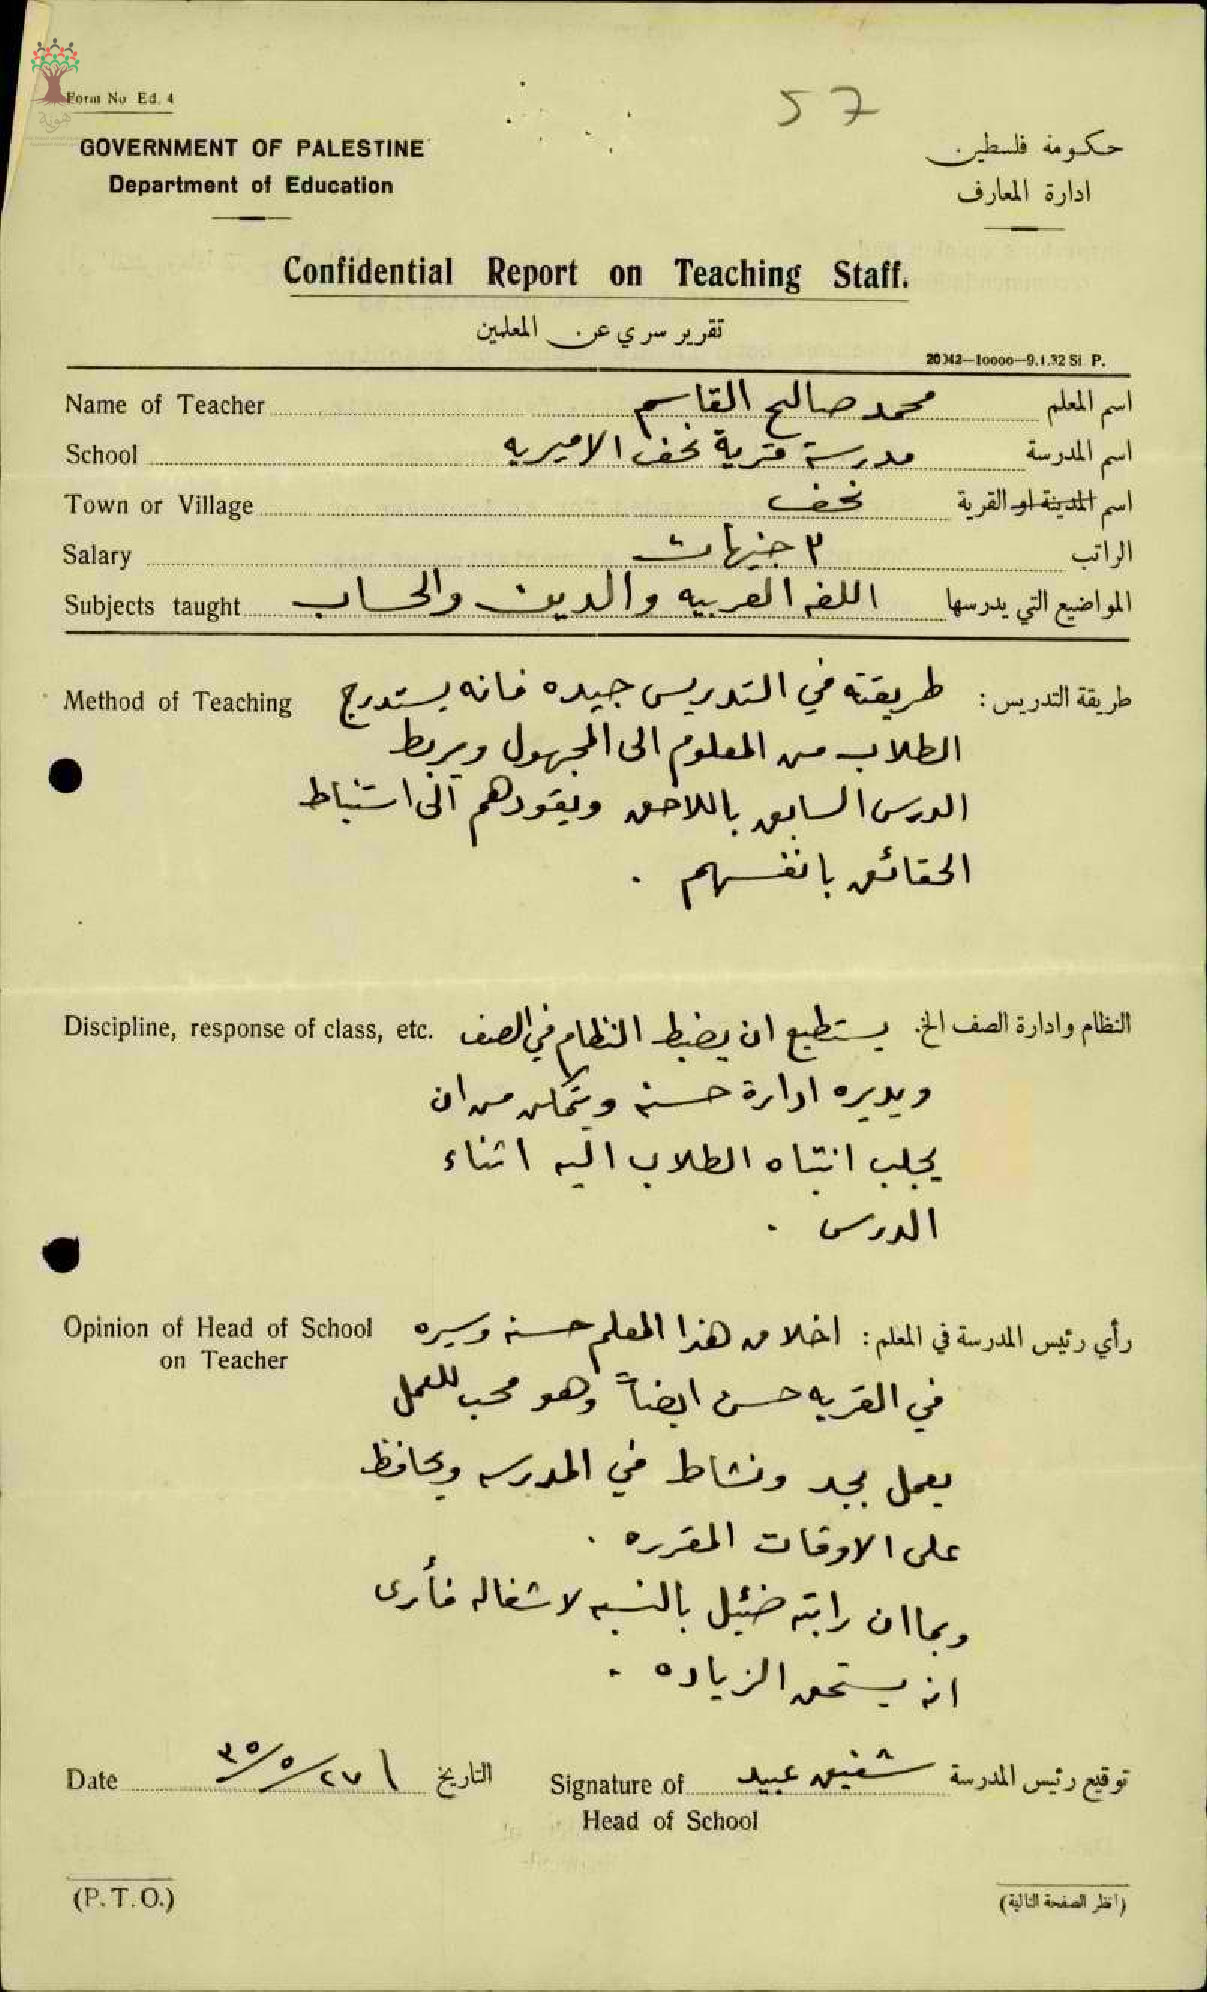 هوية
Form No Ed. 4
57
GOVERNMENT OF PALESTINE
حكومة فلسطين
Department of Education
ادارة المعارف
Confidential Report on Teaching Staff.
تقرير سري عن المعلمين
20342—10000—9.1.32 Si P.
Name of Teacher محمد صالح القاسم اسم المعلم
School مدرسة قرية نحف الاميريه اسم المدرسة
Town or Village نحف اسم المدينة او القرية
Salary ٣ جنيهات الراتب
Subjects taught اللغه العربيه والدين والحساب المواضيع التي يدرسها
Method of Teaching طريقة التدريس : طريقته في التدريس جيده فانه يستدرج
الطلاب من المعلوم الى المجهول ويربط
الدرس السابق باللاحق ويقودهم الى استنباط
الحقائق بانفسهم .
Discipline, response of class, etc. النظام وادارة الصف الخ. يستطيع ان يضبط النظام في الصف
ويديره ادارة حسنه ويتمكن من ان
يجلب انتباه الطلاب اليه اثناء
الدرس .
Opinion of Head of School رأي رئيس المدرسة في المعلم : اخلاق هذا المعلم حسنه وسيره
on Teacher
في القريه حسن ايضاً وهو محب للعمل
يعمل بجد ونشاط في المدرسه ويحافظ
على الاوقات المقرره .
وبما ان راتبه ضئيل بالنسبه لاشغاله فأرى
انه يستحق الزياده .
Date ٢٧/٥/٣٥ التاريخ Signature of شفيق عبيد توقيع رئيس المدرسة
Head of School
(P.T.O.)
(انظر الصفحة التالية)